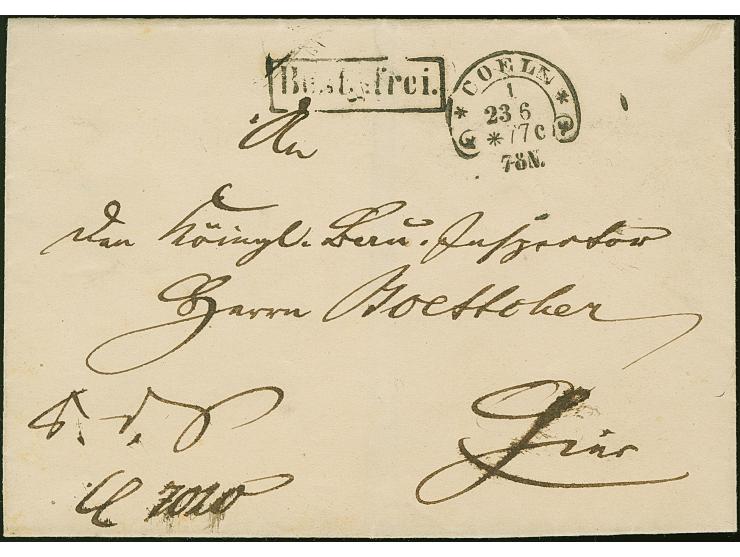 Bestg.frei.
* COELN *
1
23 6
*77 C
7-8N.
An
den Königl. Bau-Inspector
Herrn Boettcher
Hier
7020